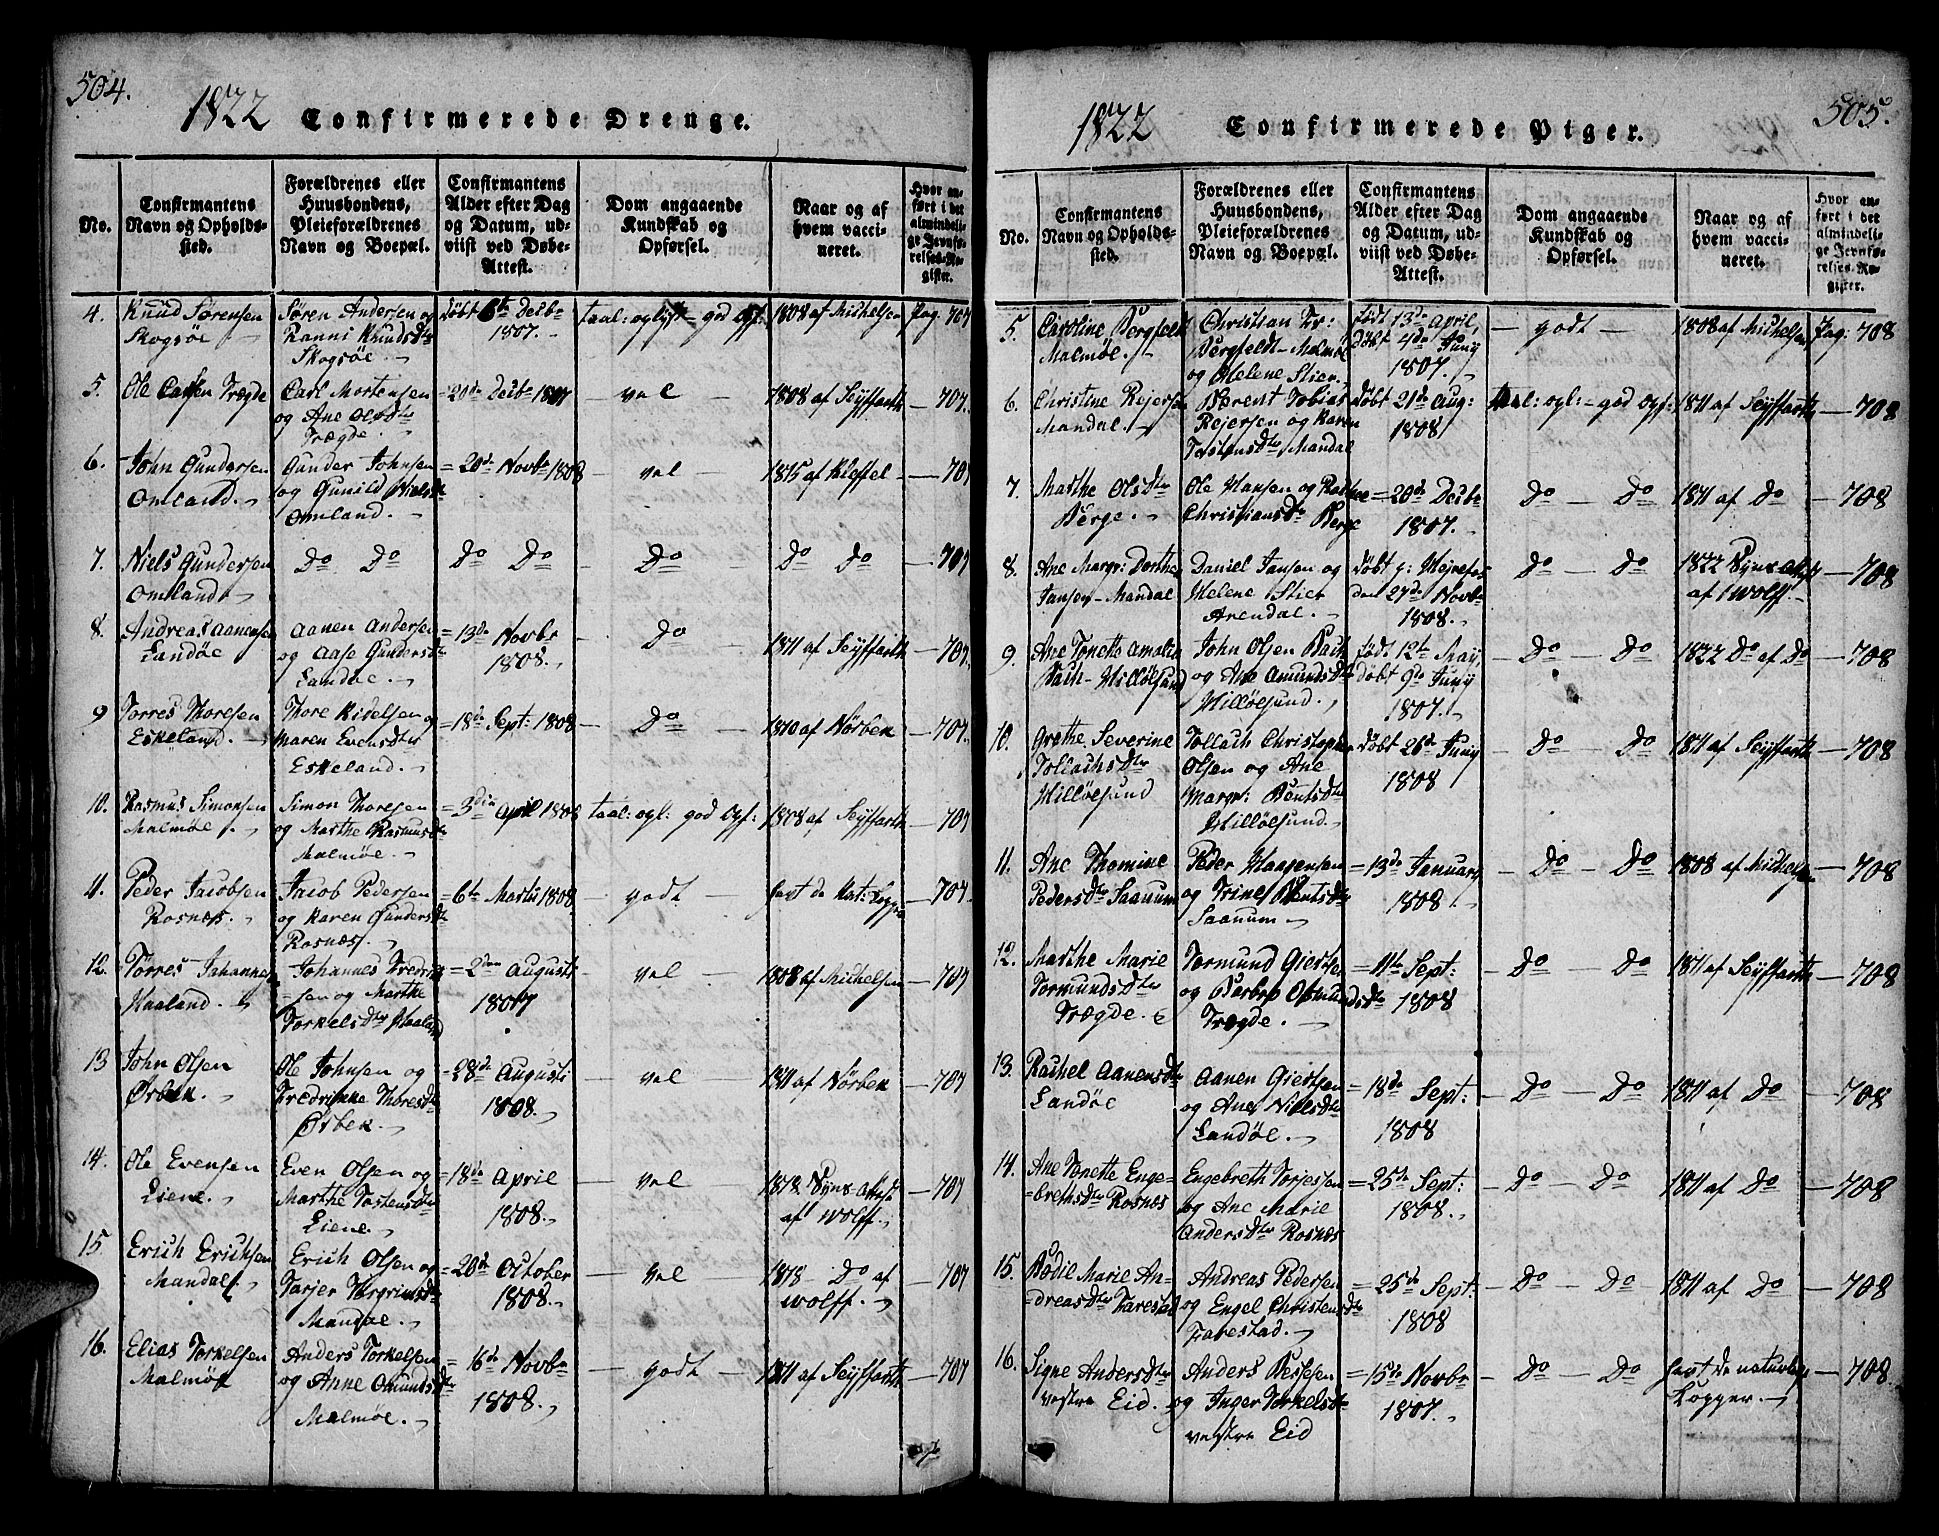 504.
1822 Confirmerede Drenge.
No.
Confirmantens
Navn og Opholds-
sted.
Forældrenes eller
Huusbondens,
Pleieforældrenes
Navn og Boepæl.
Confirmantens
Alder efter Dag
og Datum, ud-
viist ved Døbe-
Attest.
Dom angaaende
Kundskab og
Opførsel.
Naar og af
hvem vacci-
neret.
Hvor an-
ført i det
almindeli-
ge Jevnfø-
relses-Re-
gister.
4. Knud Sørensen
Skogsøe
Søren Andersen og
Ranni Knudsdtr
Skogsøe
døbt 6te Decbr
1807.
taal: oglyst - god Opf:
1808 af Michelsen
Pag. 707
5. Ole Carlsen Trægde
Carl Mortensen
og Ane Olsdtr
Trægde
= 20de Decbr 1807
— vel —
1808 af Seyffarth
— 707.
6. John Gundersen
Omland
Gunder Johnsen
og Gunild Nielsd
Omland.
= 20de Novbr 1808
— vel —
1815 af Kieffel
— 707
7. Niels Gundersen
Omland
Do Do
Do Do
Do
Do Do
— 707
8. Andreas Aanensen
Landøe
Aanen Andersen
og Aase Gundersdtr
Landøe
= 13de Novbr
1808.
— Do
1811 af Seyffarth
— 707.
9 Torres Thoresen
Eskeland.
Thore Kidelsen og
Maren Evensdtr
Eskeland.
= 18de Sept: 1808
— Do —
1810 af Nørbek
— 707.
10. Rasmus Simonsen
Malmøe
Simon Thoresen
og Marthe Rasmusdtr
Malmøe
= 3die April 1808
taal: ogl: god Opf:
1808 af Seyffarth
— 707
11. Peder Jacobsen
Rosnæs.
Jacob Pedersen
og Karen Gundersdtr
Rosnæs.
= 6te Martii 1808
— godt —
havt de nat: Kopper
— 707.
12. Torres Johannes
Haaland
Johannes Fredrik-
sen og Marthe
Torkelsdtr Haaland
= 2den Augusti
1807
— vel —
1808 af Michelsen
— 707
13 John Olsen
Ørbek.
Ole Johnsen og
Fredrikke Thoresdtr
Ørbek
- 28de Augusti
1808.
— vel —
1811 af Nørbek
— 707
14. Ole Evensen
Liene.
Even Olsen og
Marthe Tostensdtr
Liene
= 18de April
1808.
— vel —
1818 Syns Attest
af Wolff.
— 707
15 Erich Erichsen
Mandal
Erich Olsen og
Tarjer Torgrimsdtr
Mandal
= 20de October
1808.
— vel
1818 — Do af
Wolff.
707
16. Elias Torkelsen
Malmøe
Anders Torkelsen
og Anne Omundsdtr
Malmøe.
= 16de Novbr
1808.
— godt —
1811 af Seyffarth
— 707
505.
1822 Confirmerede Piger.
No.
Confirmantens
Navn og Opholds-
sted.
Forældrenes eller
Huusbondens,
Pleieforældrenes
Navn og Boepæl.
Confirmantens
Alder efter Dag
og Datum, ud-
viist ved Døbe-
Attest.
Dom angaaende
Kundskab og
Opførsel.
Naar og af
hvem vacci-
neret.
Hvor an-
ført i det
almindeli-
ge Jevnfø-
relses-Re-
gister.
5. Caroline Bergfeldt
Malmøe.
Christian Fr:
Bergfeldt - Malmøe
og Helene Stier.
født 13de April,
døbt 4de Juny
1807.
— godt —
1808 af Michelsen
Pag. 708
6. Christine Rejersen
Mandal.
Berent Tobias
Rejersen og Karen
Tostensdtr Mandal
døbt 21de Aug:
1808
taal: ogl: - god Opf:
1811 af Seyffarth
— 708
7. Marthe Olsdtr
Berge.
Ole Hansen og
Christiansdtr Berge
= 20de Decbr
1807.
Do — Do
1811 af Do
— 708
8. Ane Margr: Dorthea
Jansen - Mandal
Daniel Jansen og
Helene Stier
Arendal.
døbt
den 27de Novbr
1808.
Do — Do
1822 Syns Attest
af Wolff.
— 708
9. Ane Tonette Amalia
Bach - Hilløesund
John Olsen Bach
og Ane Amundsdtr
Hilløesund.
født 12te May,
døbt 9de Juny
1807.
— Do — Do
1822 Do af Do
— 708
10. Grethe Severine
Tollachsdtr
Hilløesund
Tollach Christopher
Olsen og Ane
Margr: Berntsdtr
Hilløesund.
døbt 26de Juny
1808
— Do — Do
1811 af Seyffarth
— 708
11. Ane Thomine
Pedersdtr Saanum
Peder Haagensen
og Trine Berntsdtr
Saanum
= 13de January
1808
— Do — Do
1808 af Michelsen
— 708
12. Marthe Marie
Tormundsdtr
Trægde.
Tormund Giertsen
og Barbro Osmundsdtr
Trægde.
= 11te Sept:
1808
— Do — Do
1811 af Seyffarth
— 708
13. Rachel Aanensdtr
Landøe
Aanen Giertsen
og Ane Nielsdtr
Landøe.
= 18de Sept:
1808
— Do — Do
1811 af Do
— 708
14. Ane Tonette Enge-
=brethsdtr Rosnæs
Engebreth Torjessen
og Ane Marie
Andersdtr Rosnæs
= 25de Sept:
1808.
Do — Do
1811 af Do
— 708
15. Bodil Marie An-
=dreasdtr Farestad
Andreas Pedersen
og Engel Christensdtr
Farestad.
= 25de Sept:
1808
— Do — Do
1811 af Do
— 708
16. Signe Andersdtr
vestre Eid.
Anders Bessesen
og Inger Torkelsdtr
vestre Eid
= 15de Novbr
1807.
— Do — Do
havt de naturlige
Kopper.
— 708.